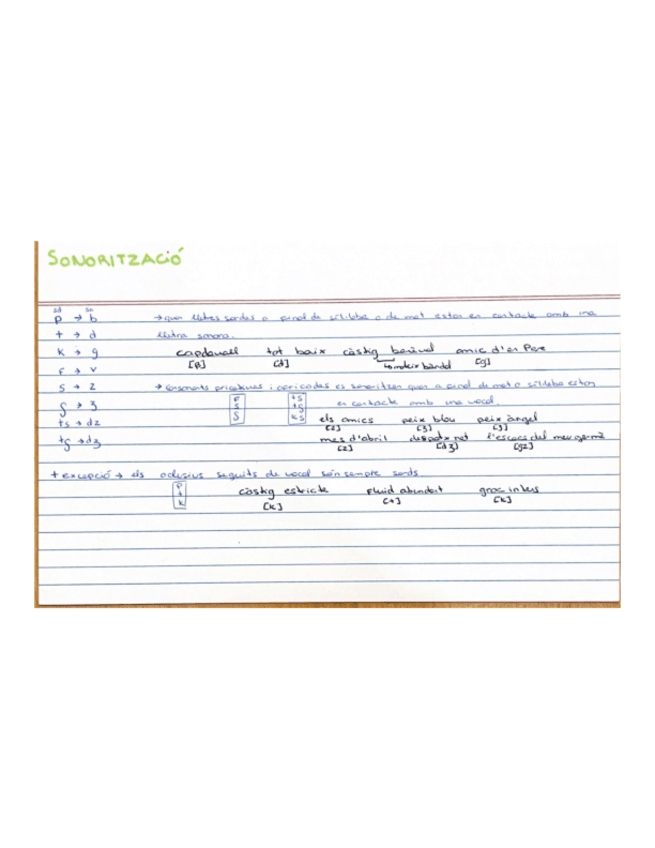 SONORITZACIÓ
sd so
p → b → quan lletres sordes a final de síl·laba o de mot estan en contacte amb una
t → d lletra sonora.
k → g capdavall tot baix càstig amic d'en Pere
[β] [d] [g]
f → v
s → z → consonants fricatives i africades es sonoritzen quan a final de mot o síl·laba estan
ʃ → ʒ f s ʃ ts tʃ ks en contacte amb una vocal.
ts → dz els amics peix blau peix àngel
[z] [ʒ] [ʒ]
tʃ → dʒ mes d'abril despatx net l'escacs del meu germà
[z] [dʒ] [gz]
+ excepció → els oclusius seguits de vocal són sempre sords
p t k càstig estricte fluid abundant groc intens
[k] [t] [k]